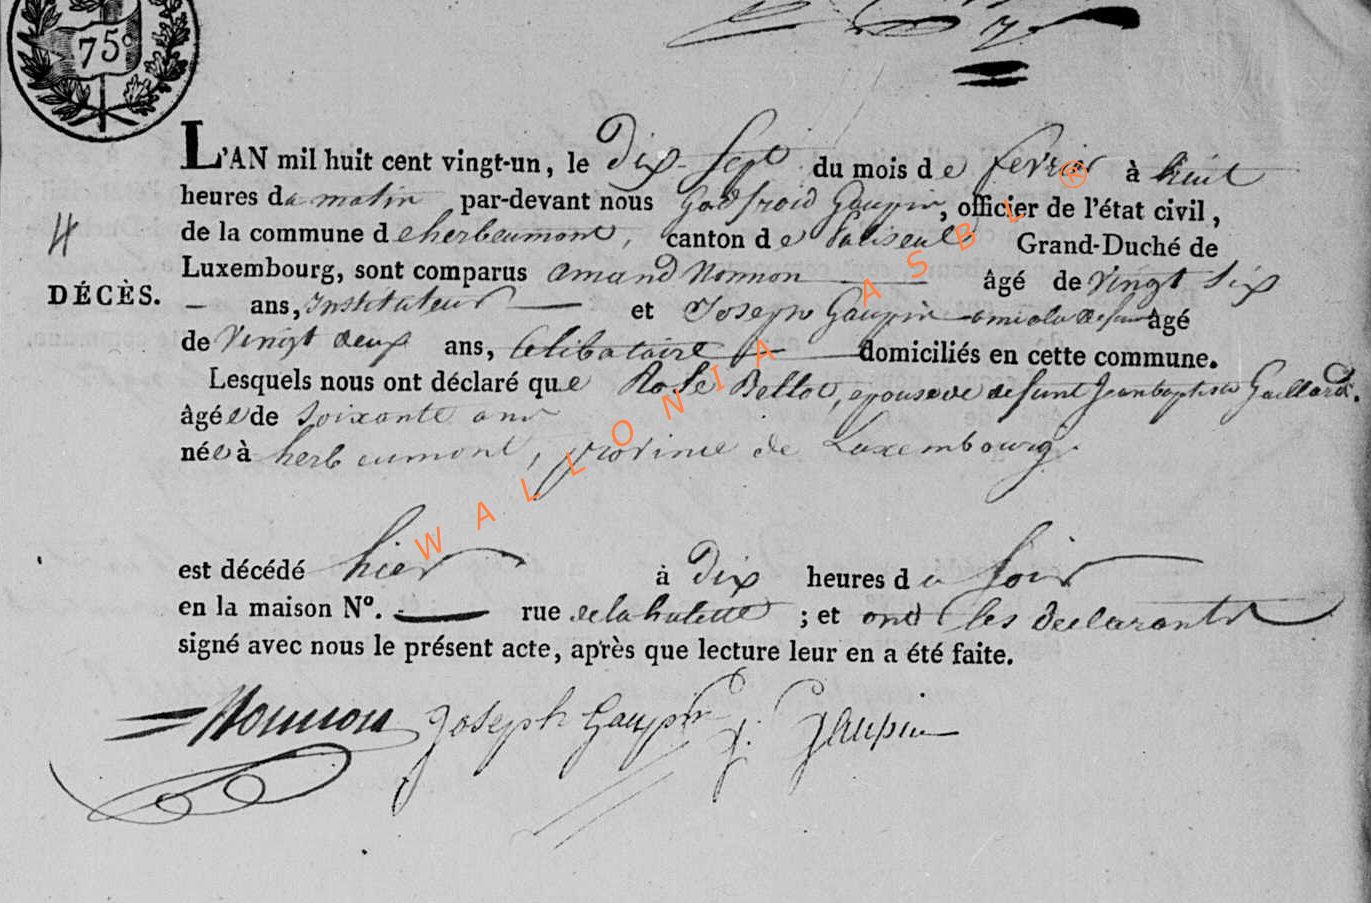 75c
L'AN mil huit cent vingt-un, le Dix-Sept du mois de fevrier à huit
heures du matin par-devant nous Godfroid Gaupin, officier de l'état civil,
de la commune d'herbeumont, canton de Paliseul Grand-Duché de
4
Luxembourg, sont comparus amand Nonnon âgé de Vingt Six
DÉCÈS.
ans, Instituteur et Joseph Gaupin ami de la defunte âgé
de Vingt deux ans, Celibataire domiciliés en cette commune.
Lesquels nous ont déclaré que Rose Bellot, epouse de defunt Jean baptiste Gaillard.
âgée de Soixante ans
née à herbeumont, province de Luxembourg.
est décédé hier à Dix heures du Soir
en la maison N°. rue de la hulette ; et ont les declarants
signé avec nous le présent acte, après que lecture leur en a été faite.
Nonnon Joseph Gaupin g. Gaupin
WALLONIA ASBL ®